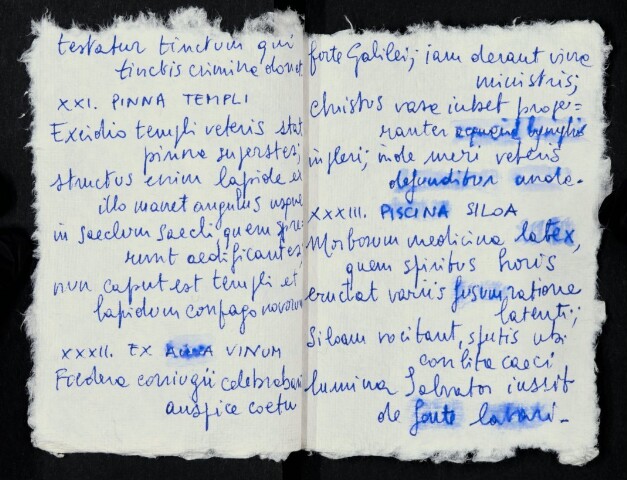 testatur tinctum qui
tinctis crimina donet
XXI. PINNA TEMPLI
Excidio templi veteris stat
pinna superstes;
structus enim lapide ex
illo manet angulus usque
in saeclum saecli quem spre
runt aedificantes;
nun caput est templi et
lapidum conpago novorum
XXXII. EX AQUA VINUM
Foedera coniugii celebrabant
auspice coetu
forte Galilei; iam derant vina
ministris;
Christus vasa iubet prope=
ranter
ingleri; inde meri veteris
defunditur unda.
XXXIII. PISCINA SILOA
Morborum medicina latex,
quem spiritus horis
eructat variis fusum ratione
latenti;
Siloam vocitant, sputis ubi
conlita caeci
lumina Salvator iussit
de fonte lavari.